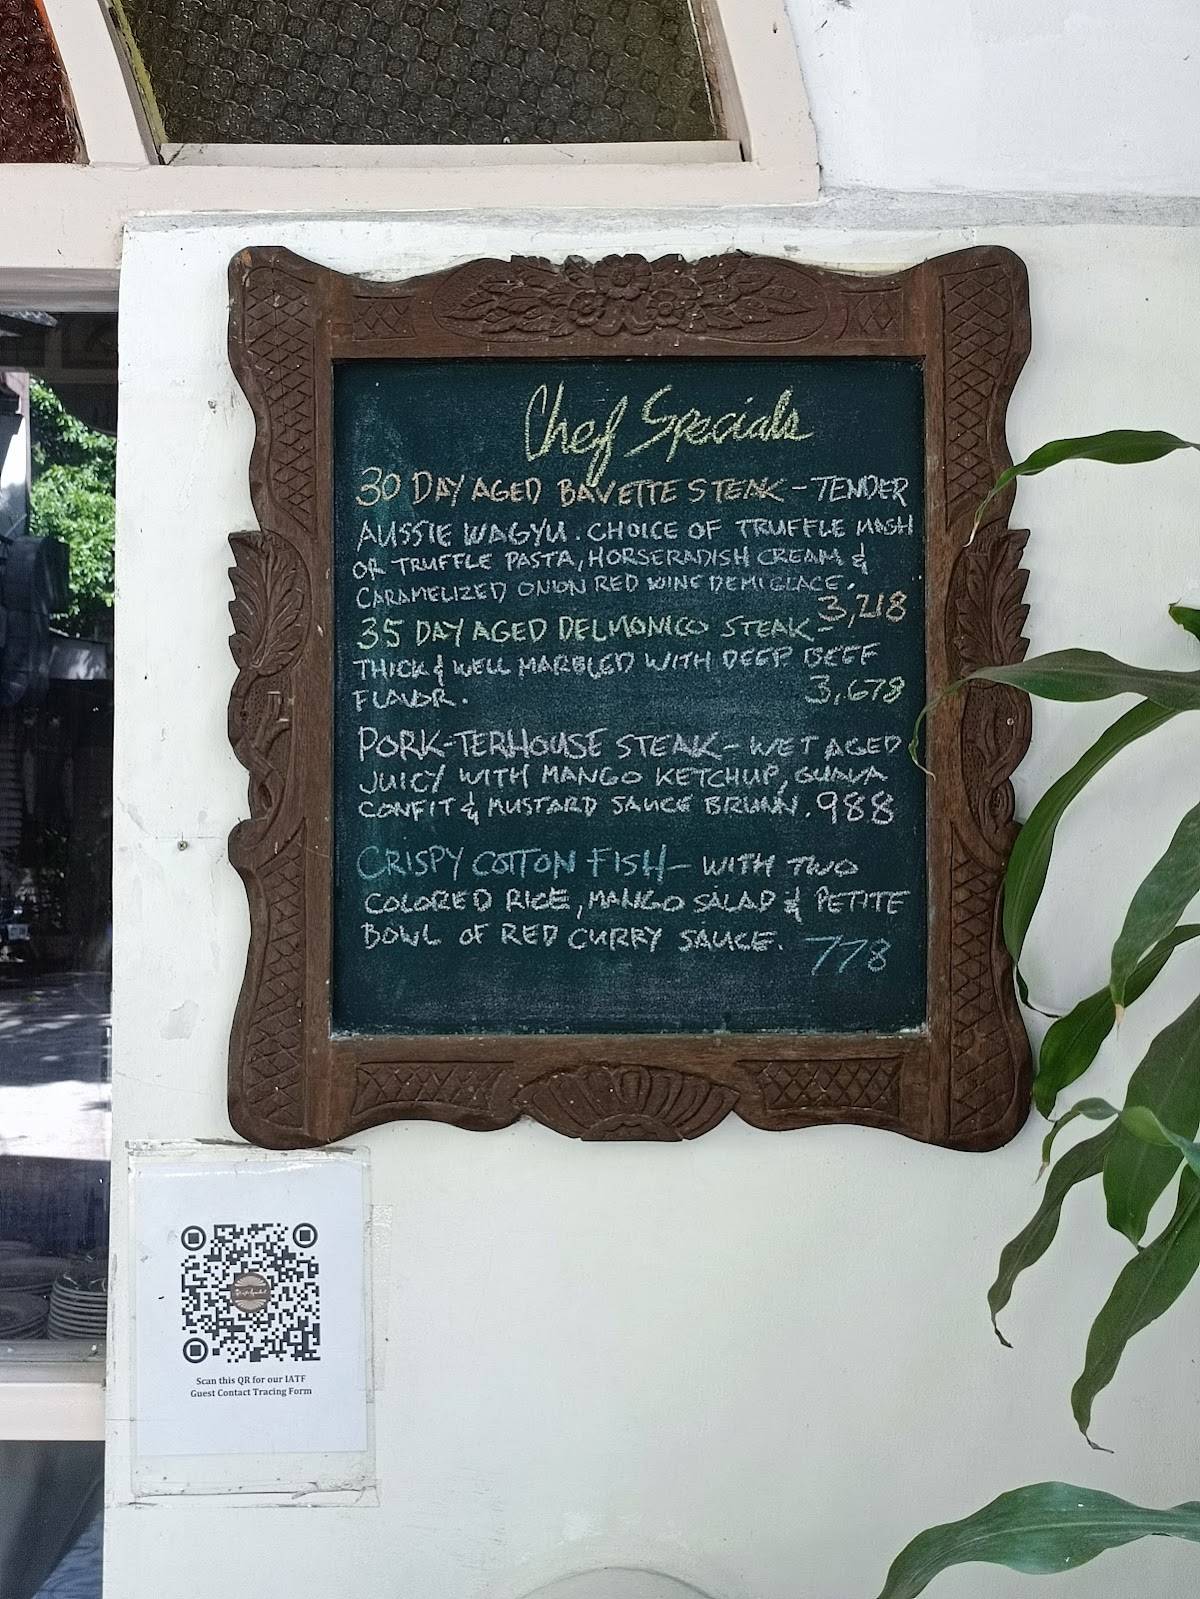 Chef Specials
30 DAY AGED BAVETTE STEAK - TENDER
AUSSIE WAGYU. CHOICE OF TRUFFLE MASH
OR TRUFFLE PASTA, HORSERADISH CREAM &
CARAMELIZED ONION RED WINE DEMIGLACE.
3,218
35 DAY AGED DELMONICO STEAK -
THICK & WELL MARBLED WITH DEEP BEEF
FLAVOR. 3,678
PORK-TERHOUSE STEAK - WET AGED
JUICY WITH MANGO KETCHUP, GUAVA
CONFIT & MUSTARD SAUCE 988
CRISPY COTTON FISH - WITH TWO
COLORED RICE, MANGO SALAD & PETITE
BOWL OF RED CURRY SAUCE. 778
Scan this QR for our IATF
Guest Contact Tracing Form